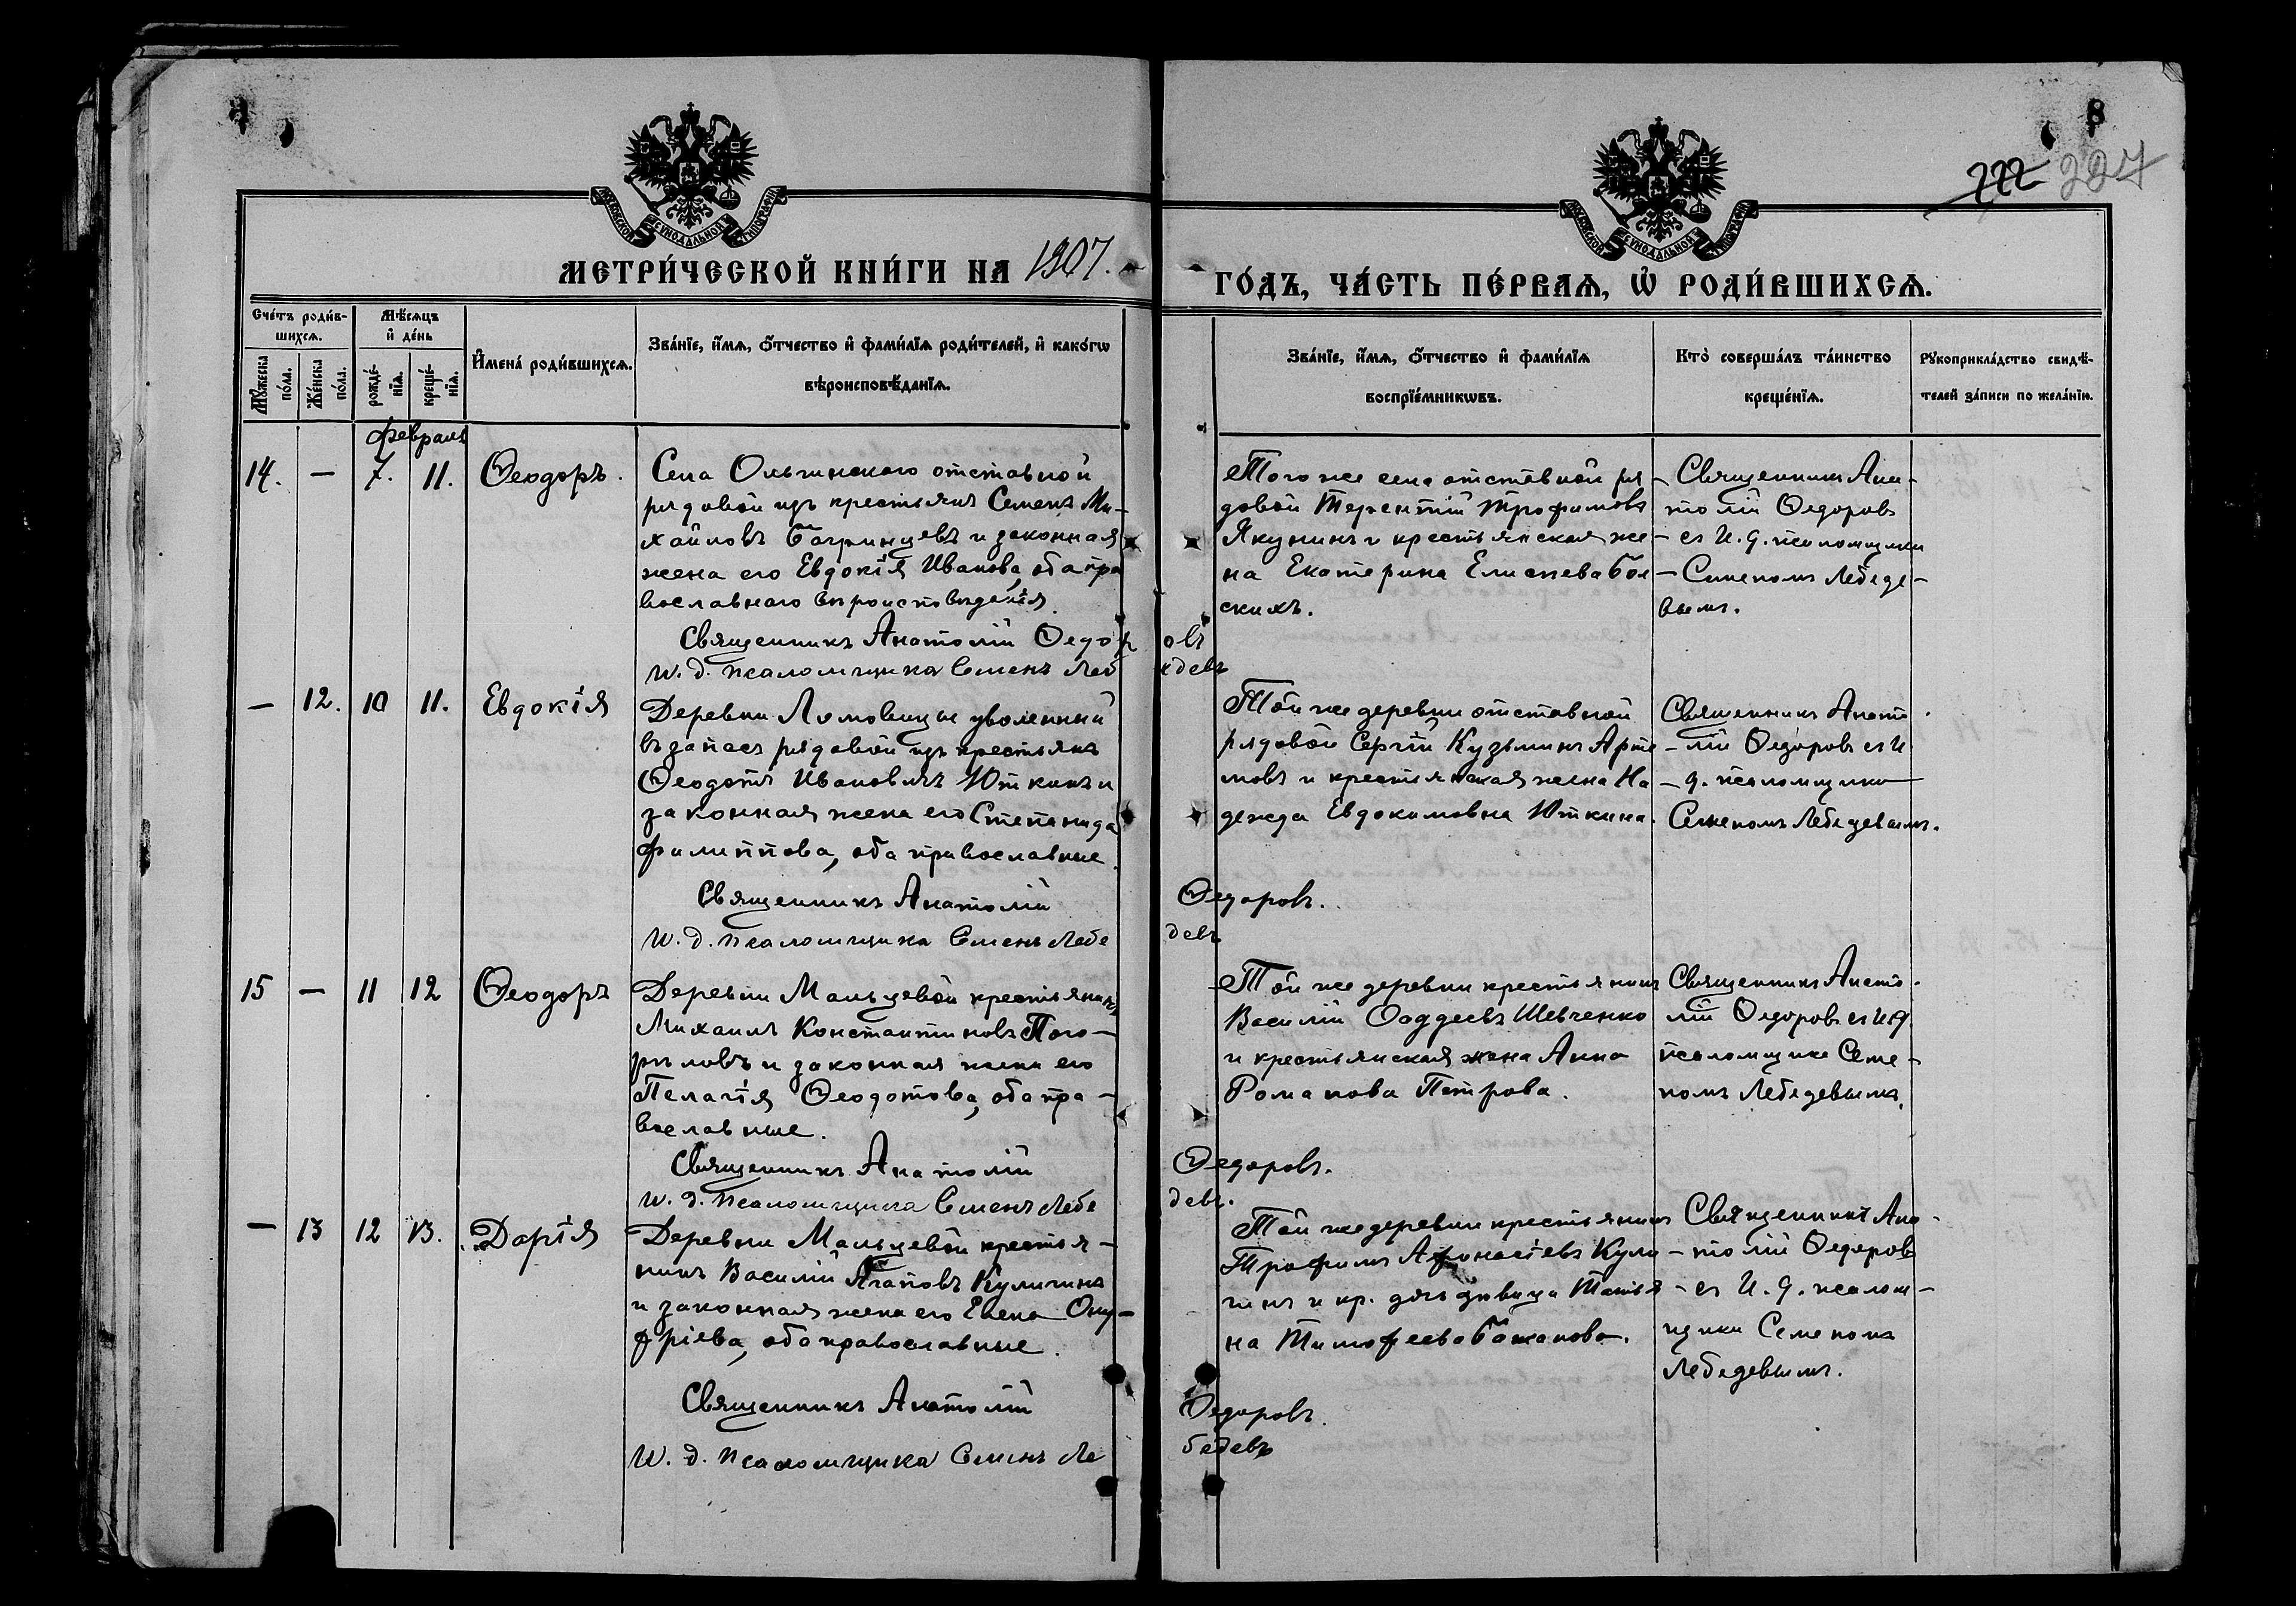 222 227
МОСКОВСКОЙ СѴНОДАЛЬНОЙ ТИПОГРАФІИ
МОСКОВСКОЙ СѴНОДАЛЬНОЙ ТИПОГРАФІИ
МЕТРИ́ЧЕСКОЙ КНИ́ГИ НА 1907.
ГО́ДЪ, ЧА́СТЬ ПЕ́РВАѦ, Ѡ҆ РОДИ́ВШИХСѦ.
Сче́тъ роди́в-
шихсѧ.
Мꙋ́жеска по́ла.
Же́нска по́ла.
Мѣ́сѧцъ
и҆ де́нь
рожде́-
нїѧ.
креще́-
нїѧ.
И҆мена̀ роди́вшихсѧ.
Зва́нїе, и҆́мѧ, ѻ҆́тчество и҆ фами́лїѧ роди́телей, и҆ како́гѡ
вѣроисповѣ́данїѧ.
Зва́нїе, и҆́мѧ, ѻ҆́тчество и҆ фами́лїѧ
воспрїе́мникѡвъ.
Кто̀ соверша́лъ та́инство
креще́нїѧ.
Рꙋкоприкла́дство свидѣ́-
телей за́писи по жела́нїю.
Февраль
14. — 7. 11. Ѳеодоръ.
Села Ольгинскаго отставной
рядовой изъ крестьянъ Семенъ Ми-
хайловъ Багринцевъ и законная
жена его Евдокія Иванова, оба пра
вославнаго вѣроисповѣданія.
Священникъ Анатолій Ѳедоровъ
И. д. псаломщика Семенъ Лебедевъ
Того же села отставной ря-
довой Терентій Трофимовъ
Якунинъ и крестьянская же-
на Екатерина Елисѣева Бой
скихъ.
Священникъ Ана-
толій Ѳедоровъ
съ И. д. псаломщика
Семеномъ Лебеде-
вымъ.
— 12. 10 11. Евдокія
Деревни Ломовицы уволенный
въ запасъ рядовой изъ крестьянъ
Ѳеодотъ Ивановичъ Юткинъ и
законная жена его Степанида
Филиппова, оба православные
Священникъ Анатолій Ѳедоровъ.
И. д. псаломщика Семенъ Лебедевъ
Той же деревни отставной
рядовой Сергій Кузьминъ Арте
мовъ и крестьянская жена На
дежда Евдокимовна Юткина.
Священникъ Анато
лій Ѳедоровъ съ И
д. псаломщика
Семеномъ Лебедевымъ.
15 — 11 12 Ѳеодоръ
Деревни Мальцевой крестьянинъ
Михаилъ Константиновъ Пого-
рѣловъ и законная жена его
Пелагія Ѳеодотова, оба пра-
вославные.
Священникъ Анатолій Ѳедоровъ.
И. д. псаломщика Семенъ Лебедевъ.
Той же деревни крестьянинъ
Василій Ѳаддеевъ Шевченко
и крестьянская жена Анна
Романова Петрова.
Священникъ Анато-
лій Ѳедоровъ съ И. д.
псаломщика Семе-
номъ Лебедевымъ.
— 13 12 13. Дарія
Деревни Мальцевой крестья-
нинъ Василій Агаповъ Куличинъ
и законная жена его Елена Ону-
фріева, оба православные.
Священникъ Анатолій Ѳедоровъ.
И. д. псаломщика Семенъ Лебедевъ
Той же деревни крестьянинъ
Трофимъ Афонасіевъ Кули
чинъ и кр. дочь дѣвица Татья
на Тимофеева Бажанова.
Священникъ Ана-
толій Ѳедоровъ
съ И. д. псалом-
щика Семеномъ
Лебедевымъ.